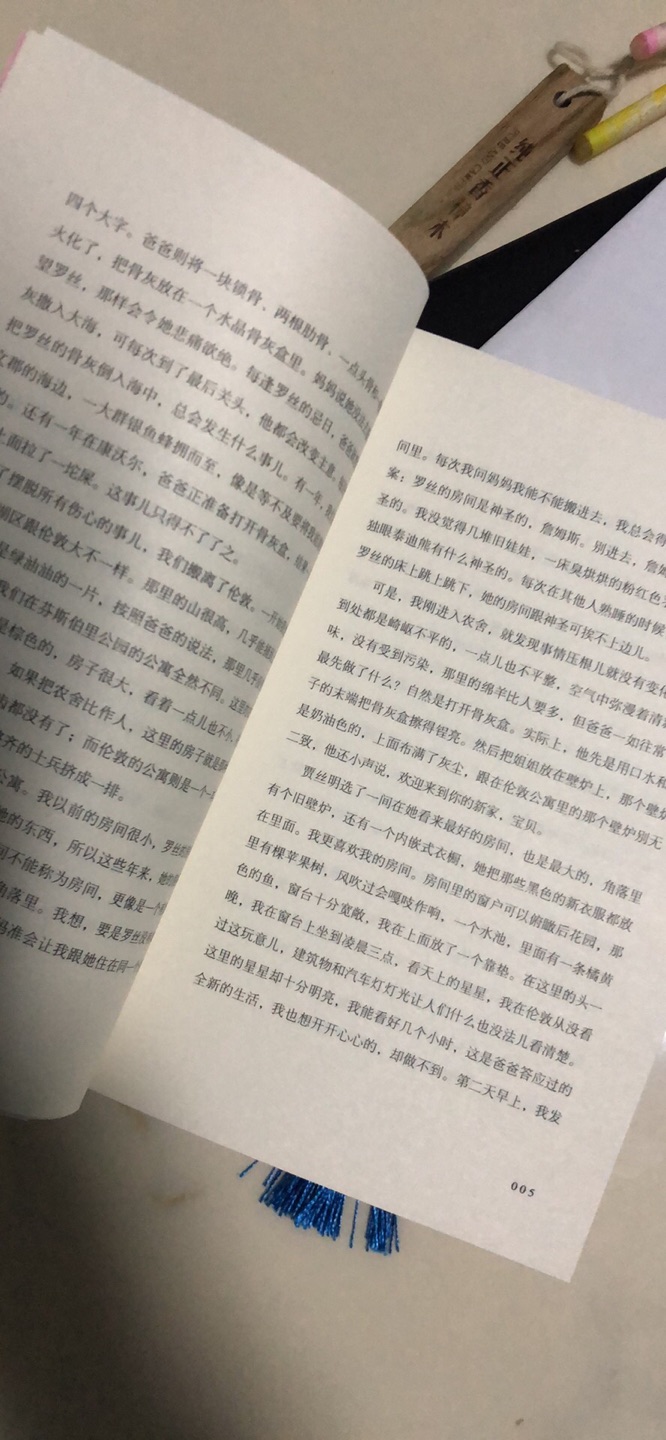 纯正香樟木
PURE AND CAMPH
四个大字。爸爸则将一块锁骨、两根肋骨、一点头骨
火化了，把骨灰放在一个水晶骨灰盒里。妈妈说她没法
望罗丝，那样会令她悲痛欲绝。每逢罗丝的忌日，爸爸
灰撒入大海，可每次到了最后关头，他都会改变主意。
把罗丝的骨灰倒入海中，总会发生什么事儿。有一年，
郡的海边，一大群银鱼蜂拥而至，像是等不及要将我
的。还有一年在康沃尔，爸爸正准备打开骨灰盒，
上面拉了一坨屎。这事儿只得不了了之。
了摆脱所有伤心的事儿，我们搬离了伦敦。一开
湖区跟伦敦大不一样。那里的山很高，几乎能
是绿油油的一片，按照爸爸的说法，那里几乎
我们在芬斯伯里公园的公寓全然不同。这里的
是棕色的，房子很大，看着一点儿也不小，
如果把农舍比作人，这里的房子就是
齿都没有了；而伦敦的公寓则是一个
整齐的士兵挤成一排。
公寓。我以前的房间很小，罗丝
她的东西，所以这些年来，她
间不能称为房间，更像是一个
角落里。我想，要是罗丝没
妈准会让我跟她住在同一个
间里。每次我问妈妈我能不能搬进去，我总会得
案：罗丝的房间是神圣的，詹姆斯。别进去，詹姆
圣的。我没觉得几堆旧娃娃，一床臭烘烘的粉红色
独眼泰迪熊有什么神圣的。每次在其他人熟睡的时候
罗丝的床上跳上跳下，她的房间跟神圣可挨不上边儿。
可是，我刚进入农舍，就发现事情压根儿就没有变化
到处都是崎岖不平的，一点儿也不平整，空气中弥漫着清
味，没有受到污染，那里的绵羊比人要多，但爸爸一如往常
最先做了什么？自然是打开骨灰盒。实际上，他先是用口水和
子的末端把骨灰盒擦得锃亮。然后把姐姐放在壁炉上，那个壁炉
是奶油色的，上面布满了灰尘，跟在伦敦公寓里的那个壁炉别无
二致，他还小声说，欢迎来到你的新家，宝贝。
贾丝明选了一间在她看来最好的房间，也是最大的，角落里
有个旧壁炉，还有一个内嵌式衣橱，她把那些黑色的新衣服都放
在里面。我更喜欢我的房间。房间里的窗户可以俯瞰后花园，那
里有棵苹果树，风吹过会嘎吱作响，一个水池，里面有一条橘黄
色的鱼，窗台十分宽敞，我在上面放了一个靠垫。在这里的头一
晚，我在窗台上坐到凌晨三点，看天上的星星，我在伦敦从没看
过这玩意儿，建筑物和汽车灯灯光让人们什么也没法儿看清楚。
这里的星星却十分明亮，我能看好几个小时，这是爸爸答应过的
全新的生活，我也想开开心心的，却做不到。第二天早上，我发
005